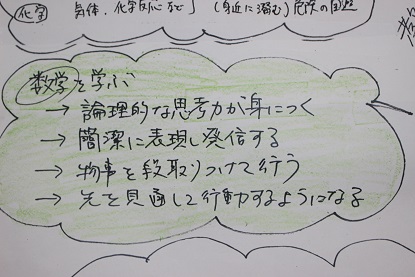 化学
気体、化学反応など」 (身近に潜む)危険の回避
数学を学ぶ
→ 論理的な思考力が身につく
→ 簡潔に表現し発信する
→ 物事を段取りつけて行う
→ 先を見通して行動するようになる